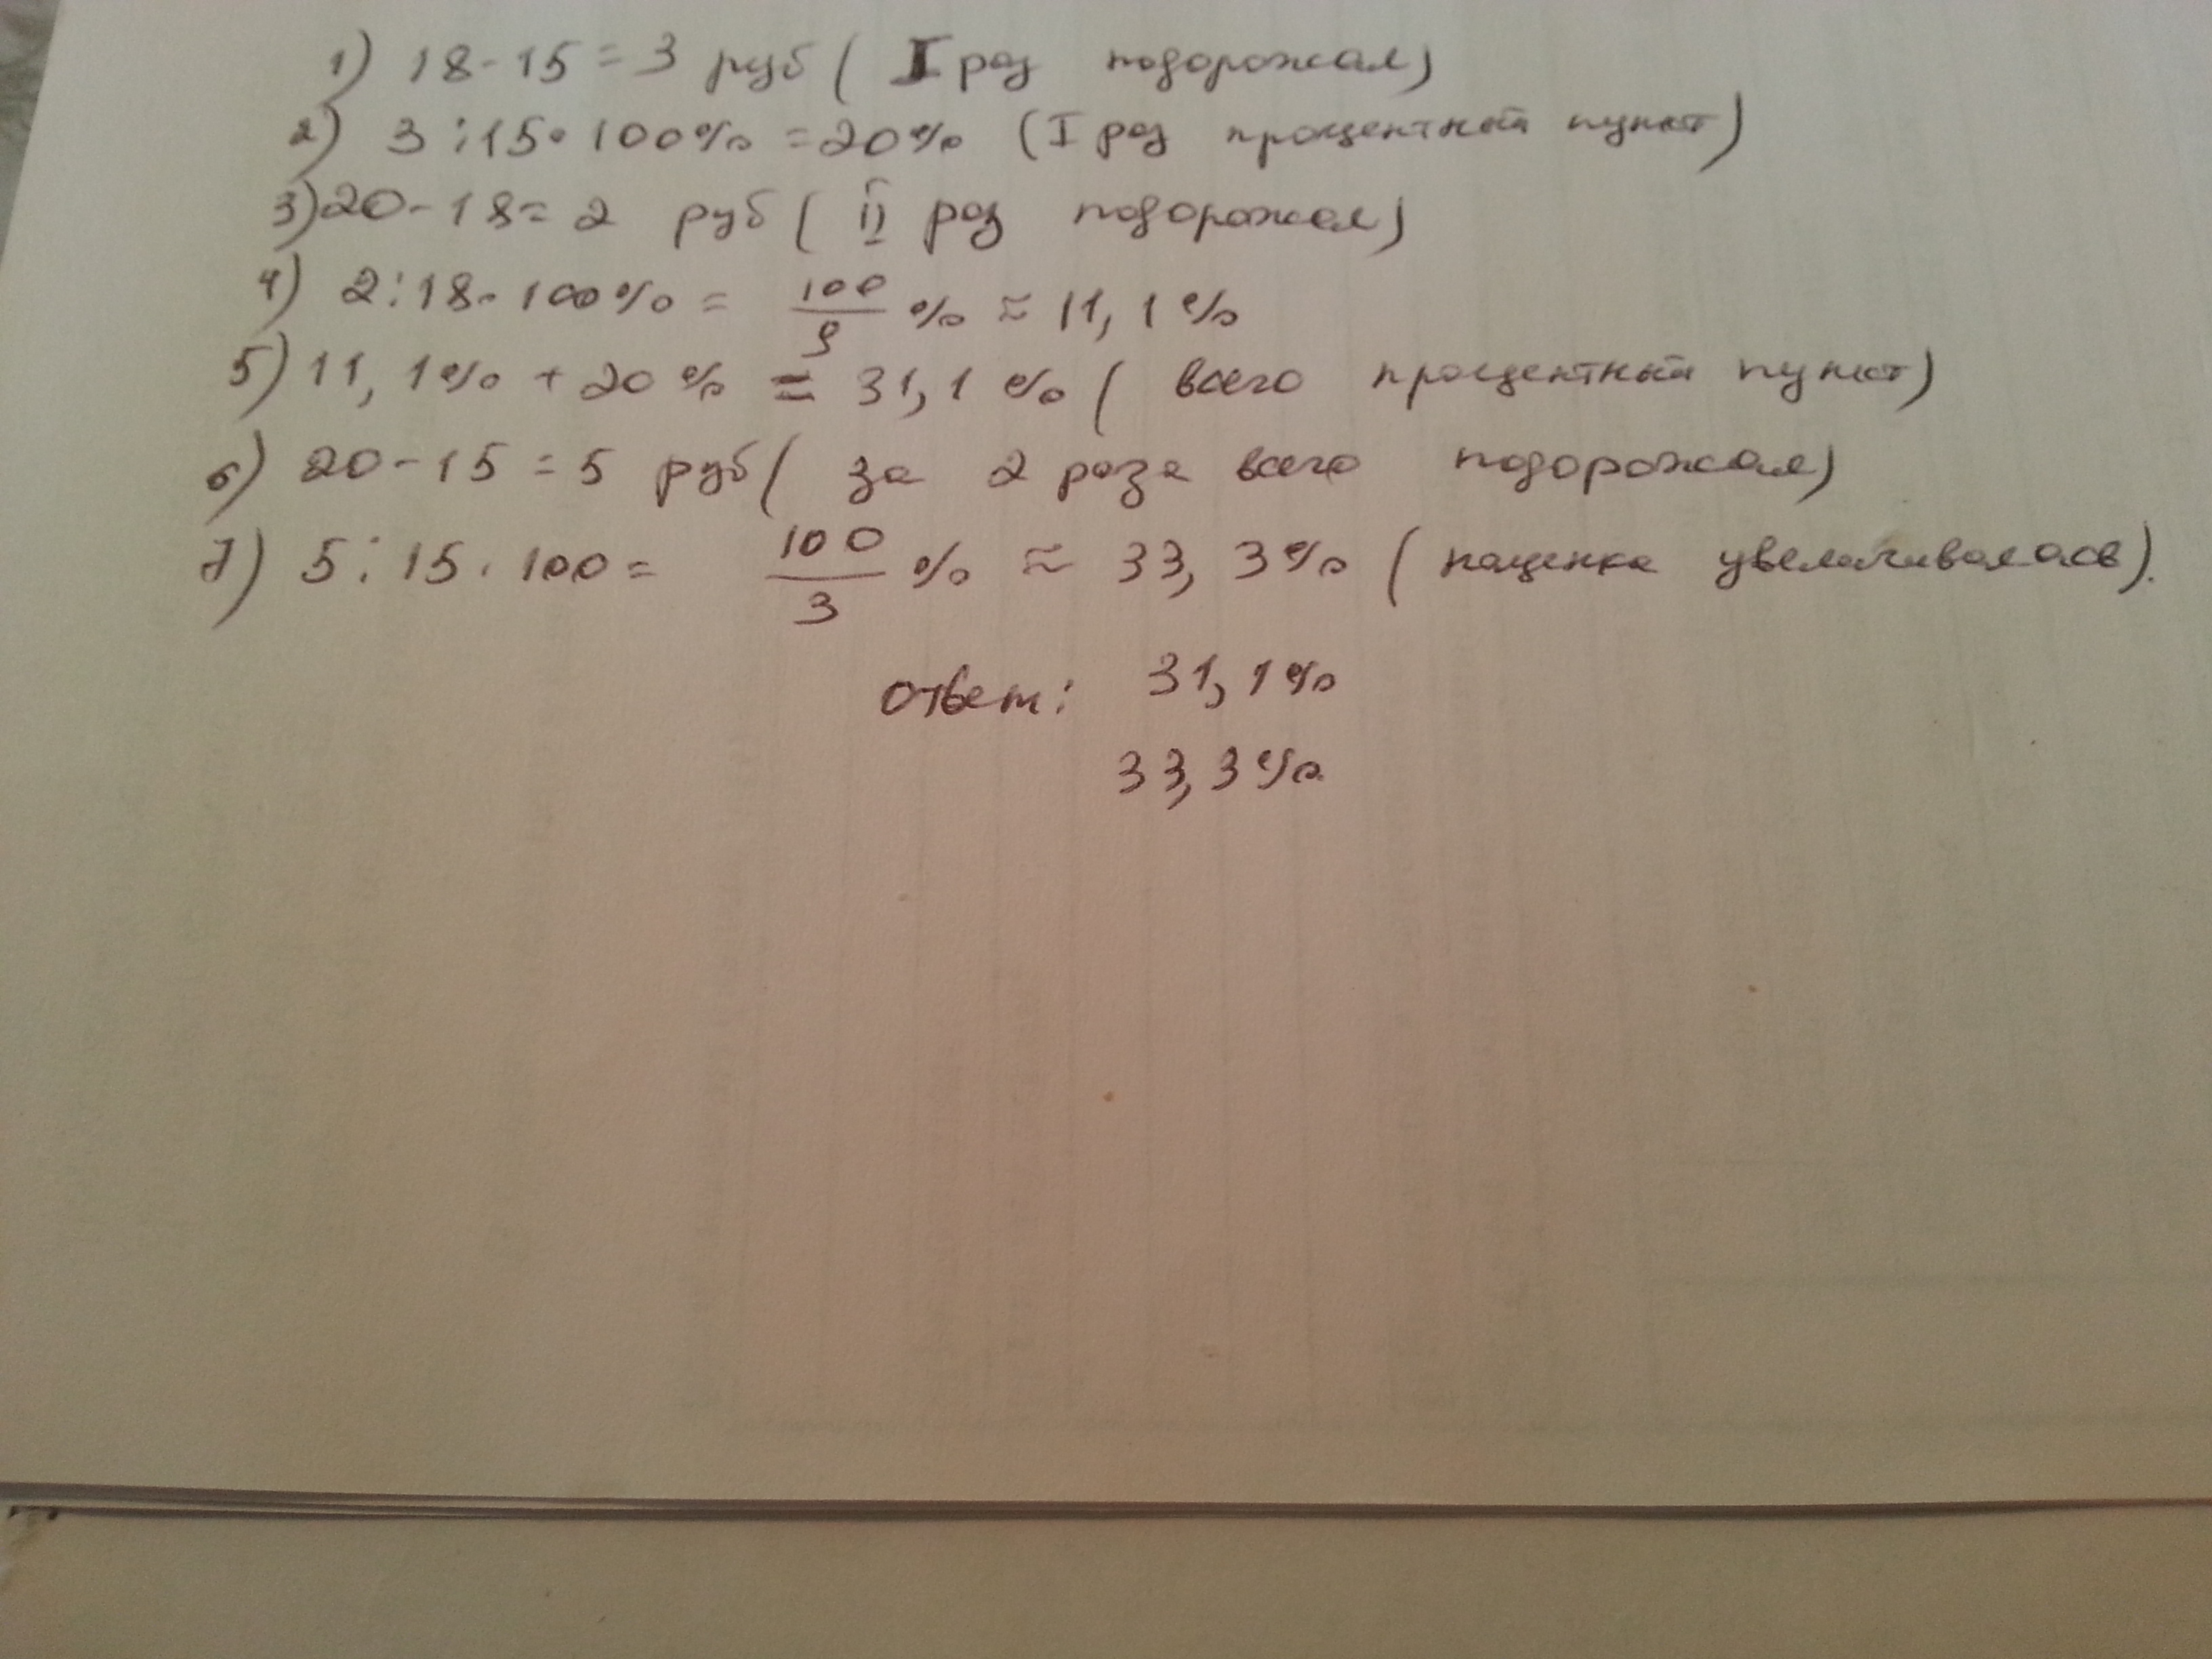 1) 18-15=3 руб ( I раз подорожал)
2) 3:15·100%=20% (I раз процентный пункт)
3) 20-18=2 руб ( II раз подорожал)
4) 2:18·100%= 100/9 % ≈ 11,1%
5) 11,1%+20%=31,1% ( всего процентный пункт)
6) 20-15=5 руб( за 2 раза всего подорожал)
7) 5:15·100= 100/3 % ≈ 33,3% ( наценка увеличивалась).
ответ: 31,1%
33,3%